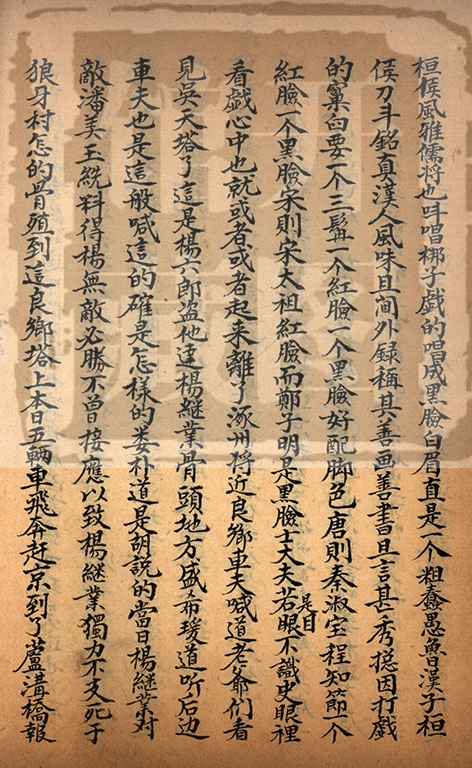 桓侯風雅儒将也呌唱梆子戲的唱成黑臉白眉直是一个粗蠢愚魯漢子桓
侯刀斗銘真漢人風味且閫外録稱其善画善書且言甚秀揔因打戲
的窠臼要一个三髯一个紅臉一个黑臉好配脚色唐則秦淑宝程知節一个
紅臉一个黑臉宋則宋太祖紅臉而鄭子明是黑臉士大夫若是目眼不識史眼裡
看戲心中也就或者或者起来離了涿州将近良鄉車夫喊道老爺們看
見吳天塔了這是楊六郎盗他達楊継業骨頭地方盛希瑗道听后边
車夫也是這般喊這的確是怎樣的娄朴道是胡説的當日楊継業对
敵潘美王統料得楊無敵必勝不曽接應以致楊継業獨力不支死于
狼牙村怎的骨殖到這良鄉塔上本日五輛車飛奔赶京到了蘆溝橋報